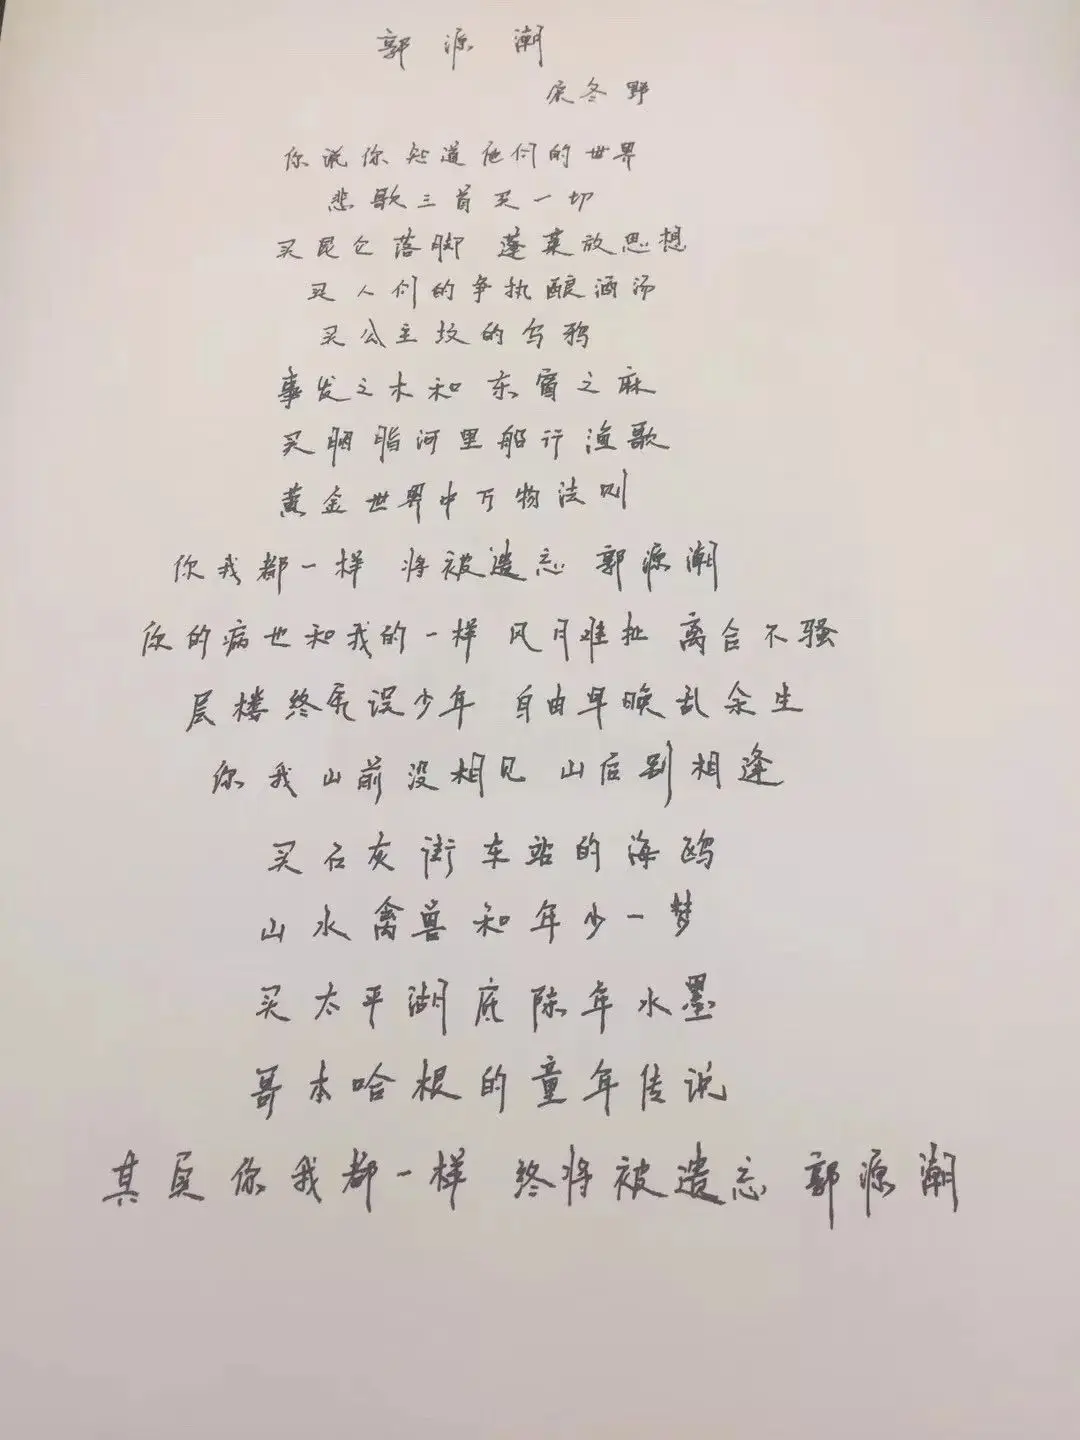 郭源潮
宋冬野
你说你知道他们的世界
悲歌三首买一切
买昆仑落脚 蓬莱放思想
买人们的争执酿酒汤
买公主坟的乌鸦
事发之木和东窗之麻
买胭脂河里船行渔歌
黄金世界中万物法则
你我都一样 将被遗忘 郭源潮
你的病也和我的一样 风月难扯 离合不骚
层楼终究误少年 自由早晚乱余生
你我山前没相见 山后别相逢
买石灰街车站的海鸥
山水禽兽和年少一梦
买太平湖底陈年水墨
哥本哈根的童年传说
其实你我都一样 终将被遗忘 郭源潮